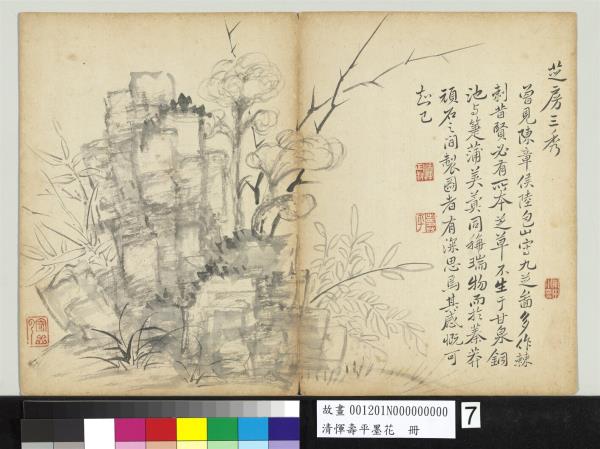 芝房三秀
曾見陳章侯陸包山寫九芝圖多作棘
刺昔賢必有所本芝草不生于甘泉銅
池与箑蒲英蓂同稱瑞物而於蓁莽
頑石之間製圖者有深思焉其感慨可
知已
故畫 001201N000000000
清惲壽平墨花 冊
7